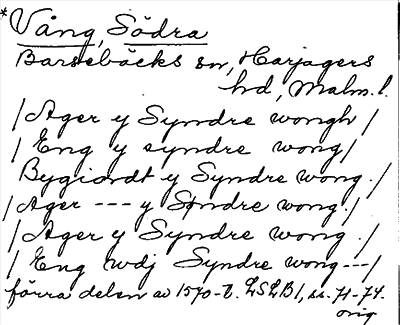 *Vång, Södra
Barsebäcks sn, Harjagers
hd, Malm. l.
/Ager y Syndre wongh/
/Eng y syndre wong/
Bygiordt y Syndre wong./
/Ager --- y Syndre wong./
/Ager y Syndre wong./
/Eng wdj Syndre wong---/
förra delen av 1570-t. LSLB 1, ss. 71-74.
orig